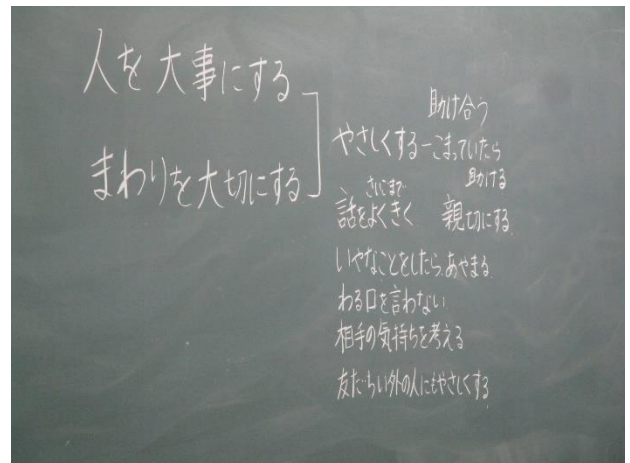 人を大事にする
まわりを大切にする
助け合う
やさしくする－こまっていたら
助ける
さいごまで
話をよくきく 親切にする
いやなことをしたら、あやまる
わる口を言わない
相手の気持ちを考える
友だちい外の人にもやさしくする